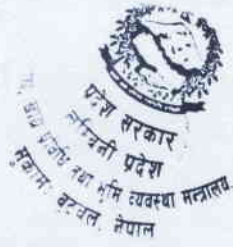 प्रदेश सरकार
लुम्बिनी प्रदेश
खाद्य प्रविधि तथा भूमि व्यवस्था मन्त्रालय
मुकाम, बुटवल, नेपाल